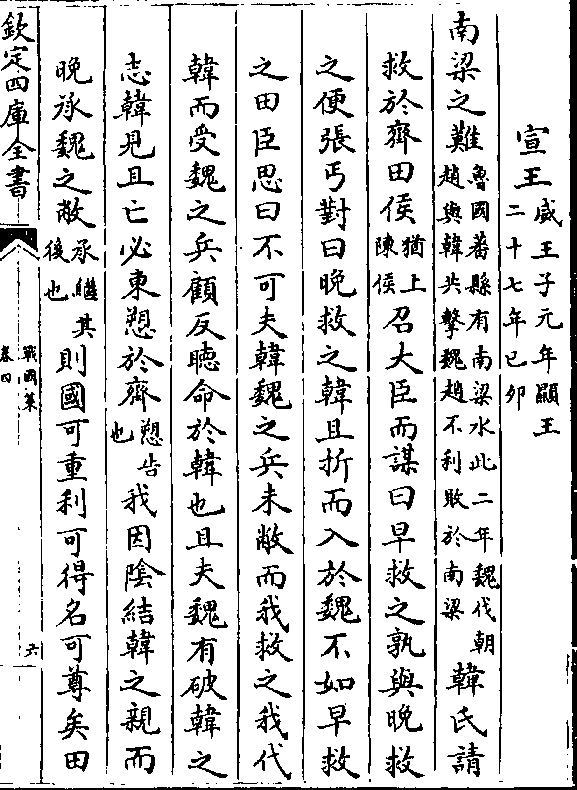 宣王威王子元年顯王二十七年已卯
南梁之難魯國蕃縣有南梁水此二年魏代朝趙與韓共擊魏趙不利敗於南梁韓氏請
救於齊田侯猶上陳侯召大臣而謀曰早救之孰與晚救
之便張丐對曰晚救之韓且折而入於魏不如早救
之田臣思曰不可夫韓魏之兵未敝而我救之我代
韓而受魏之兵顧反聽命於韓也且夫魏有破韓之
志韓見且亡必東愬於齊愬告也我因陰結韓之親而
晚承魏之敝承繼其後也則國可重利可得名可尊矣田
欽定四庫全書
戰國策
卷四
六